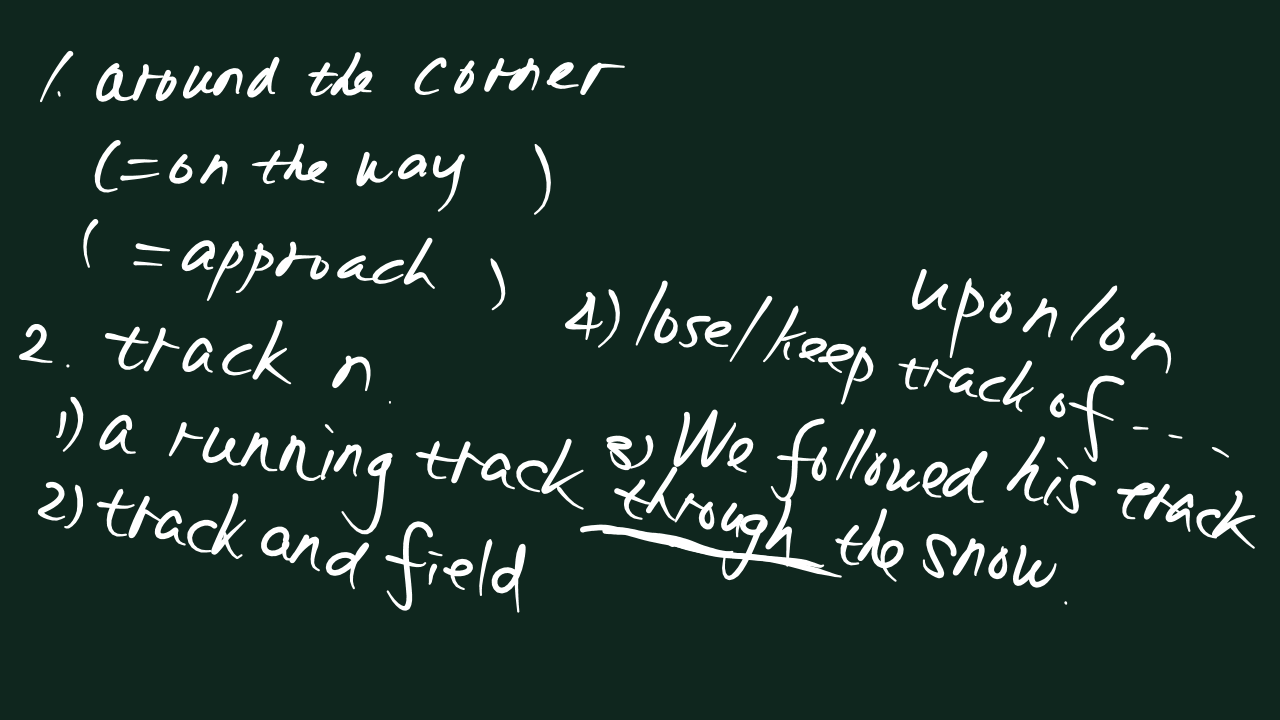 1. around the corner
(=on the way )
( =approach )
2. track n.
1) a running track
2) track and field
3) We followed his track
through the snow.
upon/on
4) lose/keep track of ----